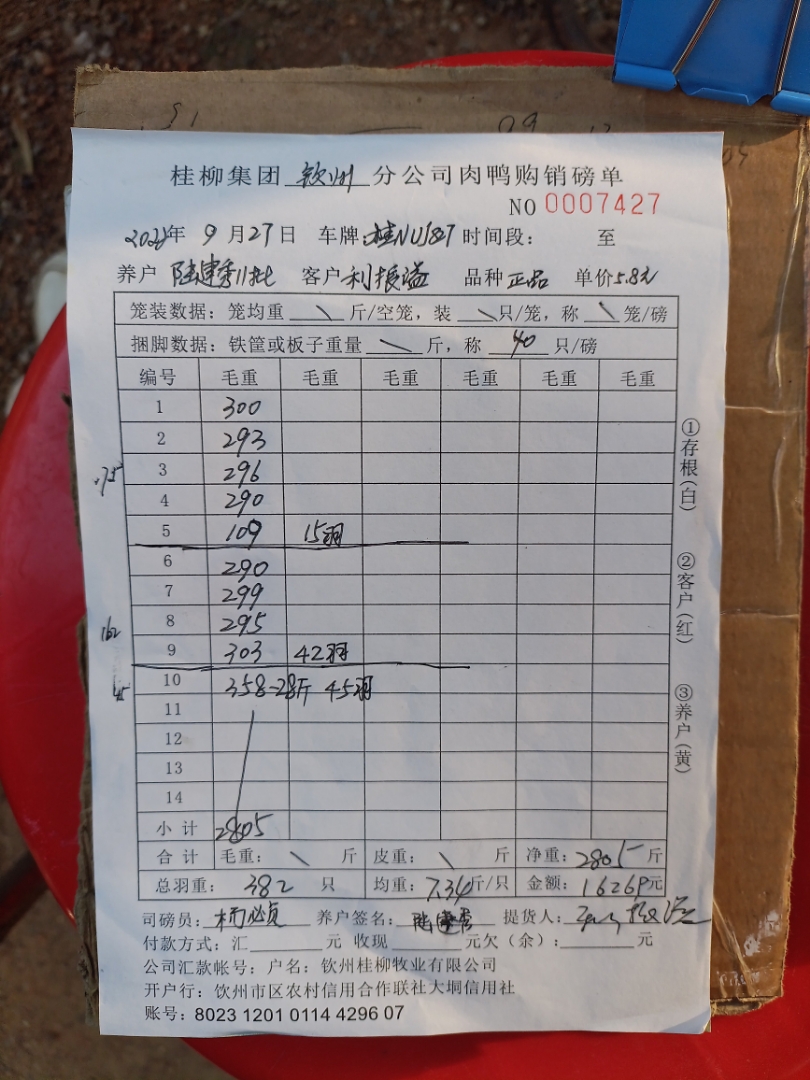 桂柳集团 钦州 分公司肉鸭购销磅单
NO 0007427
年 9 月 27 日 车牌: 桂NU1827 时间段: 至
养户 客户 利振溢 品种 正品 单价 5.8元
笼装数据: 笼均重 \ 斤/空笼, 装 \ 只/笼, 称 \ 笼/磅
捆脚数据: 铁筐或板子重量 \ 斤, 称 40 只/磅
编号 毛重 毛重 毛重 毛重 毛重 毛重
1 300
2 293
3 296
4 290
5 109 15羽
6 290
7 299
8 295
9 303 42羽
10 358-28斤 45羽
11
12
13
14
小计 2805
合计 毛重: \ 斤 皮重: \ 斤 净重: 2805 斤
总羽重: 382 只 均重: 7.34斤/只 金额: 16269元
162
45
①存根(白)
②客户(红)
③养户(黄)
司磅员: 养户签名: 提货人:
付款方式: 汇 元 收现 元欠(余): 元
公司汇款帐号: 户名: 钦州桂柳牧业有限公司
开户行: 钦州市区农村信用合作联社大垌信用社
账号: 8023 1201 0114 4296 07